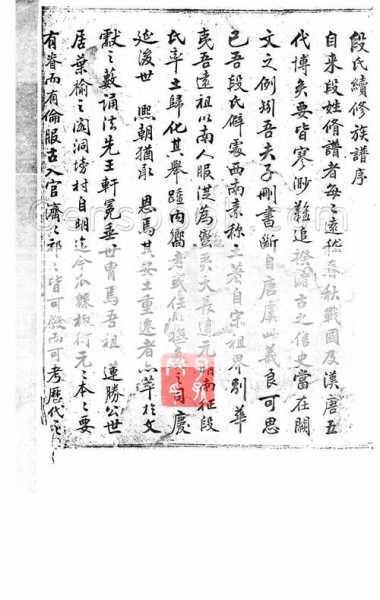 段氏續修族譜序
自來段姓脩譜者每々遠稽春秋戰國及漢唐五
代博矣要皆寥渺難追揆諸古之信史當在闕
文之例矧吾夫子刪書斷自唐虞此義良可思
已吾段氏僻處西南素称土著自宋祖界別華
夷吾遠祖以南人服從為蠻夷天長逍元朝南征段
氏率土歸化其舉躔内嚮者或任宣撫之司慶
延後世熙朝猶承恩焉其安土重遷者亦萃於文
獻之藪诵法先王軒冕垂世胄焉吾祖蓮勝公世
居葉榆之閣洞塝村自明迄今瓜緜椒衍元々本々要
有眷而有倫服古入官濟々祁々皆可啟而可考歷代